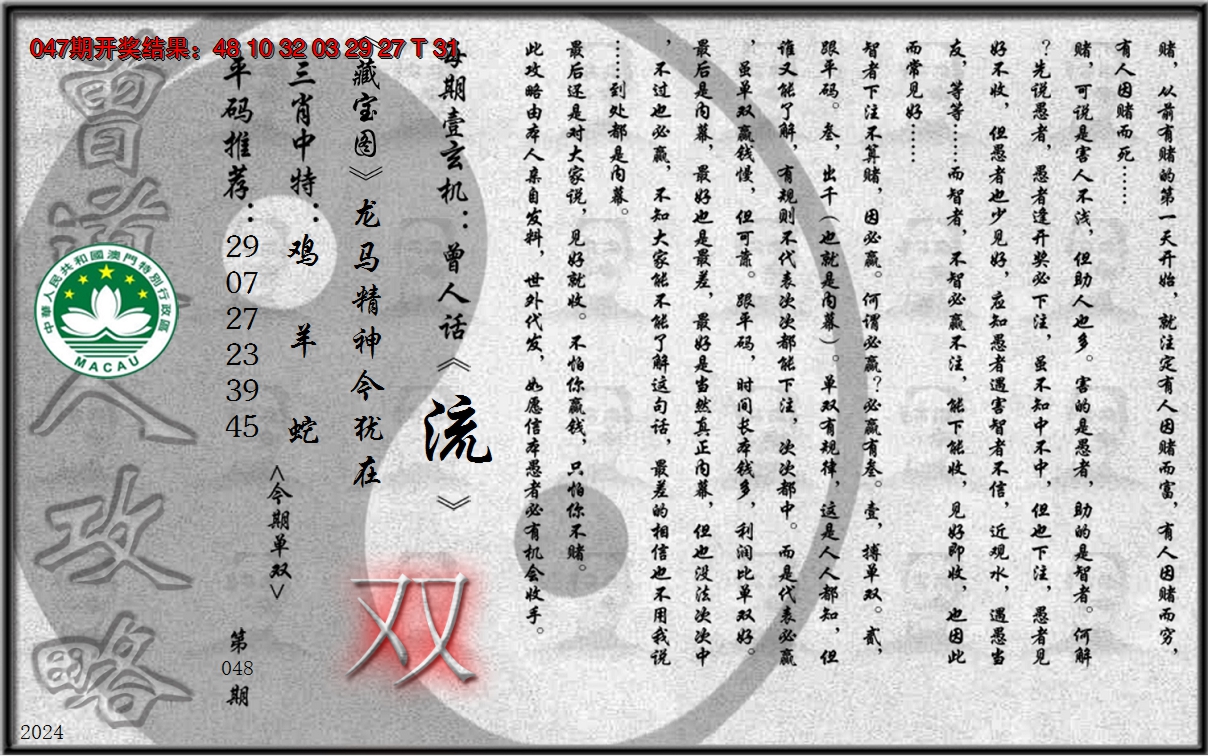 047期开奖结果：48 10 32 03 29 27 T 31
赌，从前有赌的第一天开始，就注定有人因赌而富，有人因赌而穷，
有人因赌而死……
赌，可说是害人不浅，但助人也多。害的是愚者，助的是智者。何解
？先说愚者，愚者逢开奖必下注，虽不知中不中，但也下注，愚者见
好不收，但愚者也少见好，应知愚者遇害智者不信，近观水，遇愚当
友，等等……而智者，不智必赢不注，能下能收，见好即收，也因此
而常见好……
智者下注不算赌，因必赢。何谓必赢？必赢有叁。壹，搏单双。贰，
跟平码。叁，出千（也就是内幕）。单双有规律，这是人人都知，但
谁又能了解，有规则不代表次次都能下注，次次都中。而是代表必赢
，虽单双赢钱慢，但可靠。跟平码，时间长本钱多，利润比单双好。
最后是内幕，最好也是最差，最好是当然真正内幕，但也没法次次中
，不过也必赢，不知大家能不能了解这句话，最差的相信也不用我说
……到处都是内幕。
最后还是对大家说，见好就收。不怕你赢钱，只怕你不赌。
此攻略由本人亲自发料，世外代发，如愿信本愚者必有机会收手。
每期壹玄机：曾人话《流》
《藏宝图》龙马精神今犹在
双
三肖中特：鸡 羊 蛇
<今期单双>
平码推荐：29 07 27 23 39 45
第048期
曾道人攻略
中華人民共和國澳門特別行政區
MACAU
2024